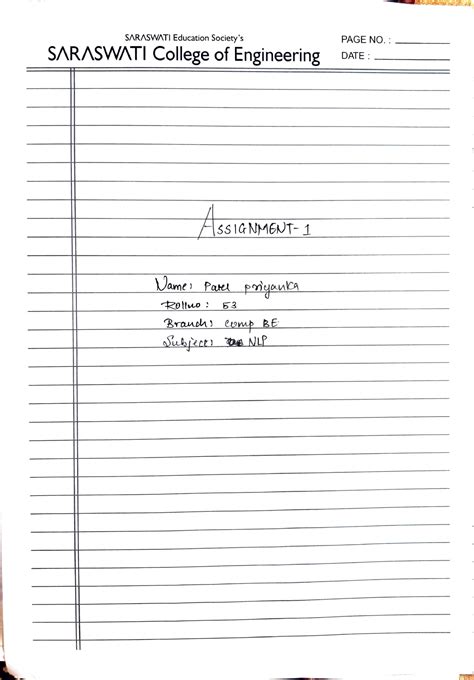 SARASWATI Education Society's
SARASWATI College of Engineering
PAGE NO. :
DATE :
ASSIGNMENT-1
Name: Patel Priyanka
Rollno : 53
Branch: Comp BE
Subject: NLP